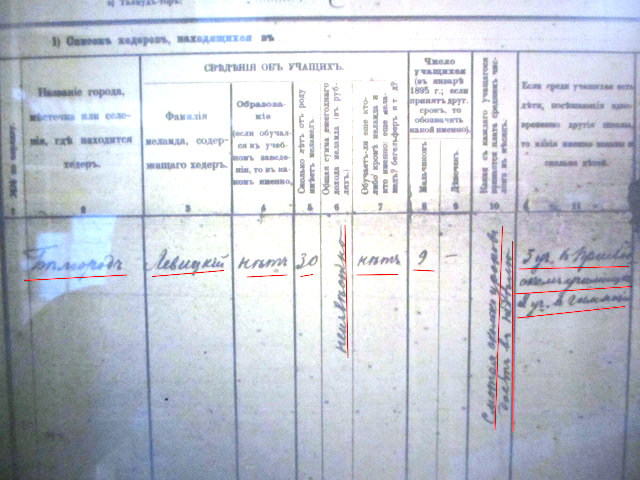 в) Талмудъ-тор.
1) Списокъ хедеровъ, находящихся въ
Название города,
мѣстечка или селе-
нія, гдѣ находится
хедеръ.
СВѢДѢНІЯ ОБЪ УЧАЩИХЪ.
Фамилія
меламда, содер-
жащаго хедеръ.
Образова-
ніе
(если обучал-
ся въ учеб-
номъ заведе-
ніи, то въ ка-
комъ именно,
Сколько лѣтъ отъ роду
имѣетъ меламедъ.
Общая сумма ежегоднаго
дохода меламда (въ руб-
ляхъ.)
Обучаетъ-ли еще кто-
либо кромѣ меламда и
кто именно: еще мела-
мидъ? бегельферъ и т д?
Число
учащихся
(въ январѣ
1895 г.; если
принятъ друг.
срокъ, то
обозначить
какой именно).
Мальчиковъ
Дѣвочекъ
Какая съ каждаго учащагося
взимается плата среднимъ чис-
ломъ въ мѣсяцъ.
Если среди учащихся есть
дѣти, посѣщающія одно-
временно другія школы
то какія именно школы и
сколько дѣтей.
2 3 4 5 6 7 8 9 10 11
Бѣлгородъ
Левицкій
нѣтъ
30
неизвѣстно
нѣтъ
9
—
3 уч. въ
2 уч. въ гимназіи